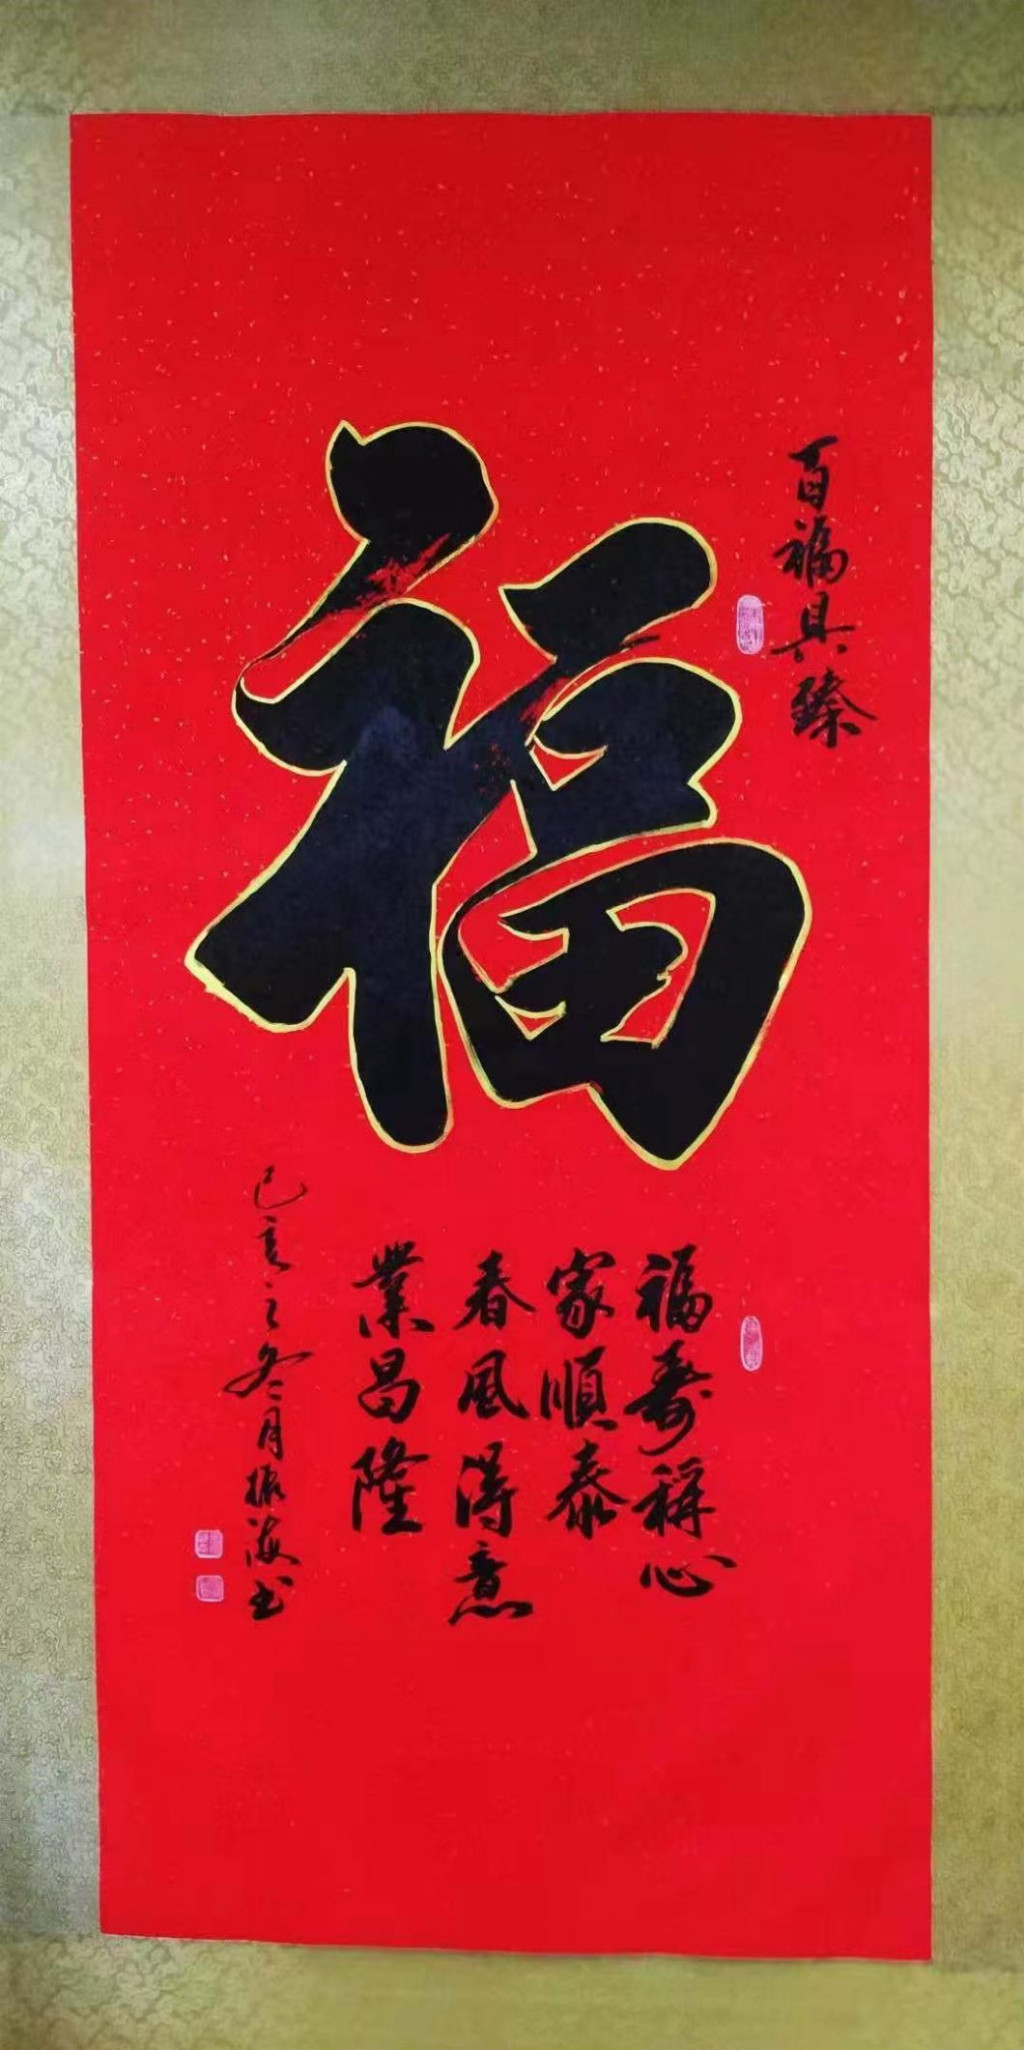 百福具臻
福
福壽稱心
家順泰
春風得意
業昌隆
己亥之冬月振海書